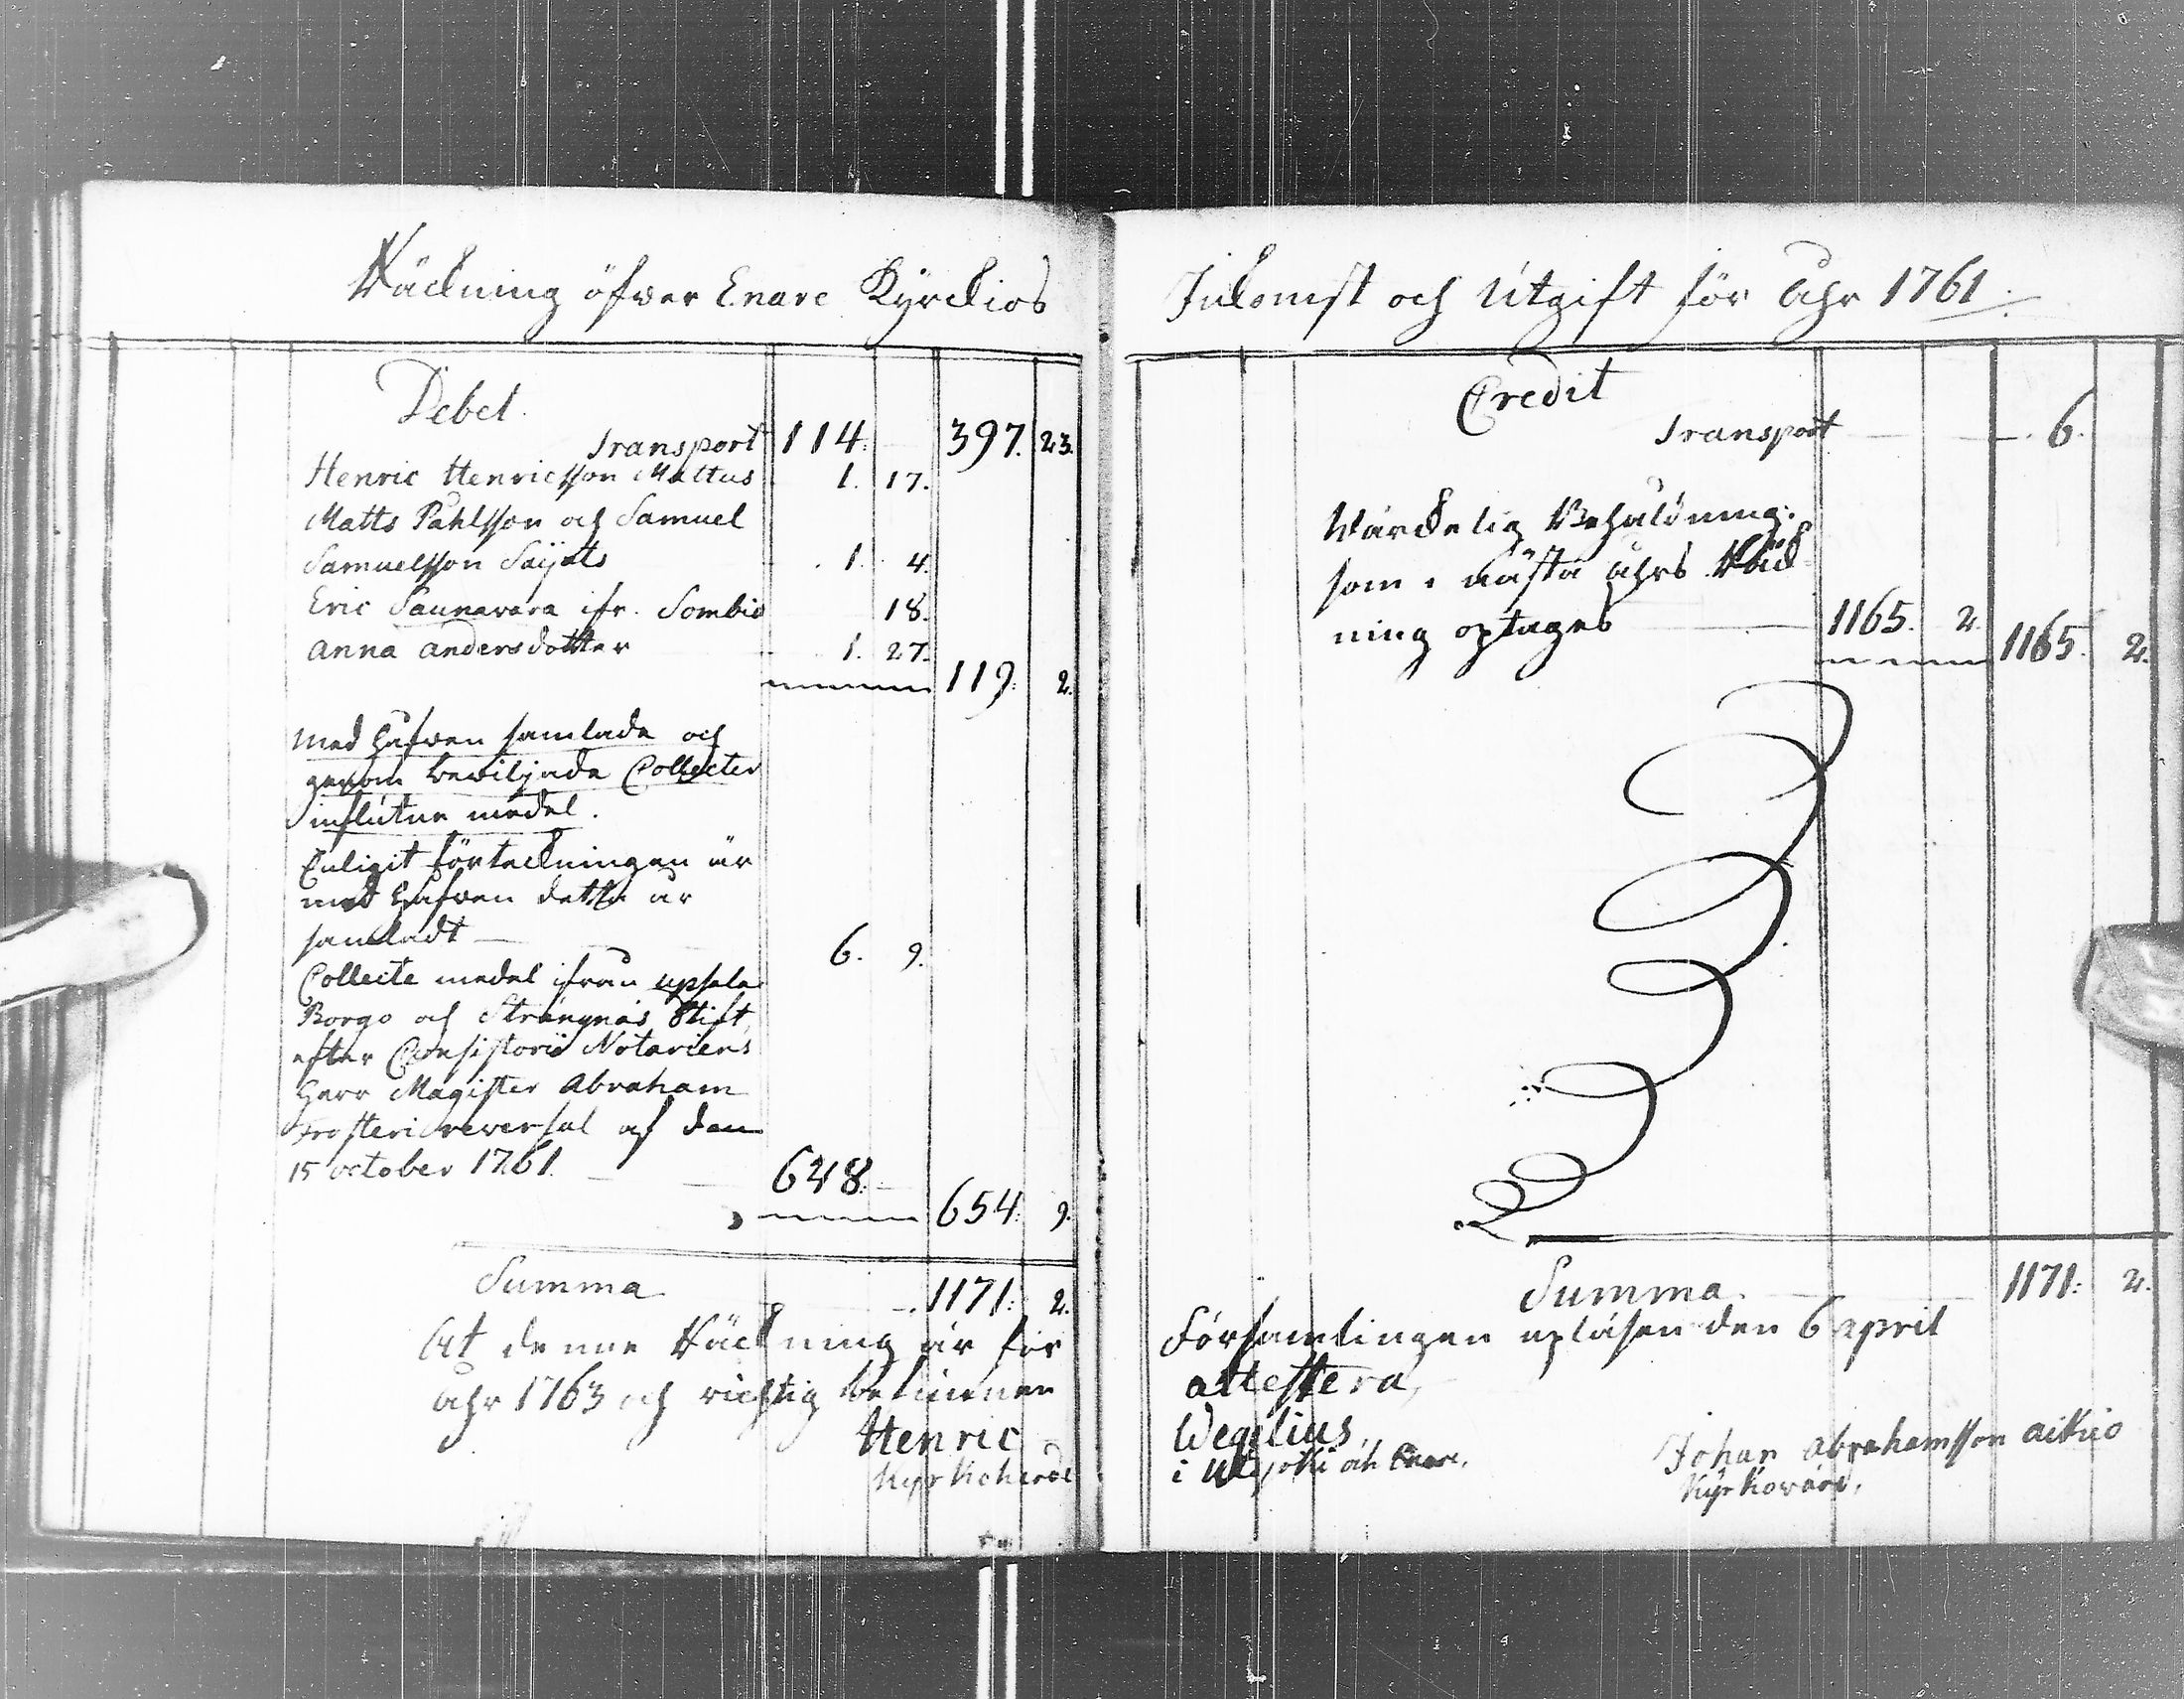 Räckning öfwer Enare Kyrckios
Debet.
Transport 114. 397. 23.
Henric Henricsson Mattus 1. 17.
Matts Påhlsson och Samuel
Samuelsson Saijets 1. 4.
Eric Saunavara ifr. Sombio 18.
Anna Andersdotter 1. 27.
119. 2.
Med håfwen samlade och
genom bewiljade Collecter
influtne medel.
Enligit förteckningen är
med håfwen detta år
samladt 6. 9.
Collecte medel ifrån Upsala
Borgo och Strängnäs Stift,
efter Consistorii Notariens
Herr Magister Abraham
Frosteri reversal af den
15 october 1761. 648.
654. 9.
Summa 1171. 2.
At denne Räckning är för
åhr 1763 och richtig befunnen
Henric
Kyrkioherde
Inkomst och Utgift för åhr 1761.
Credit
Transport 6.
Wärckelig Behåldning:
som i nästa åhrs Räck-
ning optages 1165. 2. 1165. 2.
Summa 1171: 2.
Församlingen upläsen den 6 april
attestera,
Wegelius,
i Utsjoki och Enare.
Johan Abrahamsson Aikio
Kyrkiowärd.